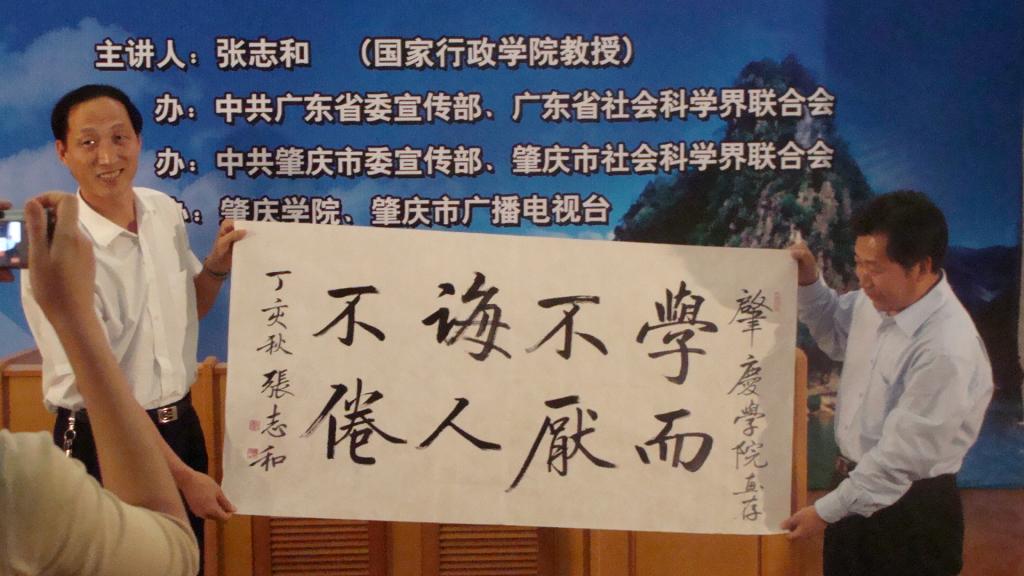 主讲人：张志和 （国家行政学院教授）
办：中共广东省委宣传部、广东省社会科学界联合会
办：中共肇庆市委宣传部、肇庆市社会科学界联合会
：肇庆学院、肇庆市广播电视台
肇慶學院惠存
學而
不厭
誨人
不倦
丁亥秋張志和